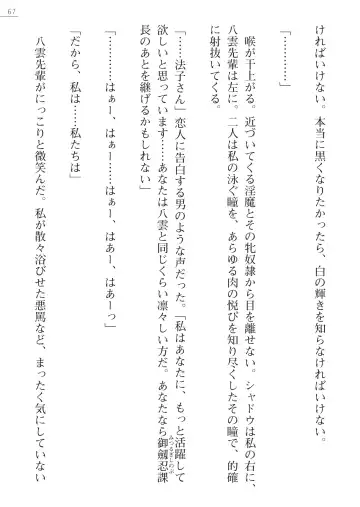 67
ければいけない。本当に黒くなりたかったら、白の輝きを知らなければいけない。
「…………」
喉が干上がる。近づいてくる淫魔とその牝奴隷から目を離せない。シャドウは私の右に、
八雲先輩は左に。二人は私の泳ぐ瞳を、あらゆる肉の悦びを知り尽くしたその瞳で、的確
に射抜いてくる。
「……法子さん」恋人に告白する男のような声だった。「私はあなたに、もっと活躍して
欲しいと思っています……あなたは八雲と同じくらい凛々しい方だ。あなたなら御劔忍課
みつるぎしのぶ
長のあとを継げるかもしれない」
「…………はぁー、はぁー、はあー、はあーっ」
「だから、私は……私たちは」
八雲先輩がにっこりと微笑んだ。私が散々浴びせた悪罵など、まったく気にしていない